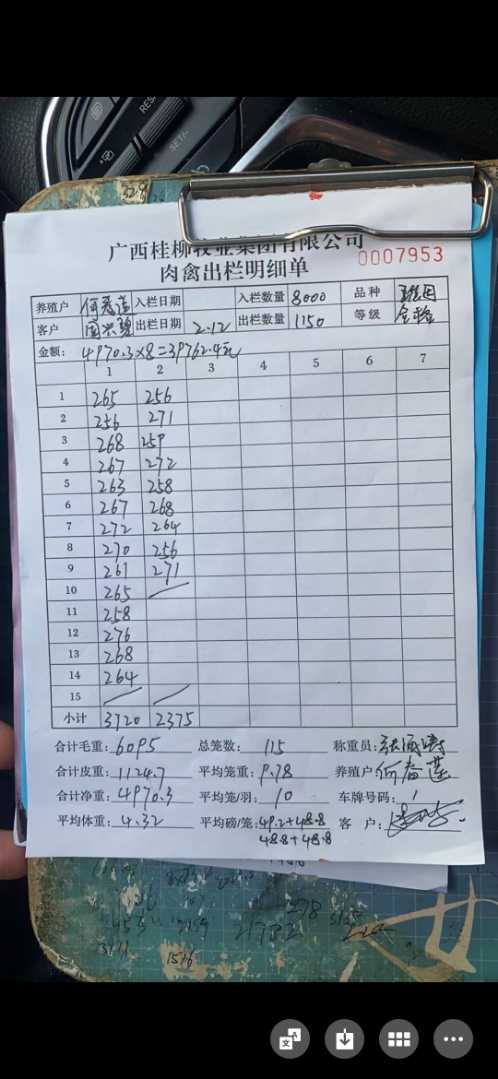 广西桂柳牧业集团有限公司
肉禽出栏明细单
0007953
养殖户 何春莲 入栏日期 入栏数量 8000 品种
客户 出栏日期 2.12 出栏数量 1150 等级
金额: 4970.3×8=39762.4元
1 2 3 4 5 6 7
1 265 256
2 256 271
3 268 259
4 267 272
5 263 258
6 267 268
7 272 264
8 270 256
9 261 271
10 265
11 258
12 276
13 268
14 264
15
小计 3720 2375
合计毛重: 6095 总笼数: 115 称重员:
合计皮重: 1124.7 平均笼重: 9.78 养殖户: 何春莲
合计净重: 4970.3 平均笼/羽: 10 车牌号码:
平均体重: 4.32 平均磅/笼: 49.2+48.8 客 户:
48.8+48.8